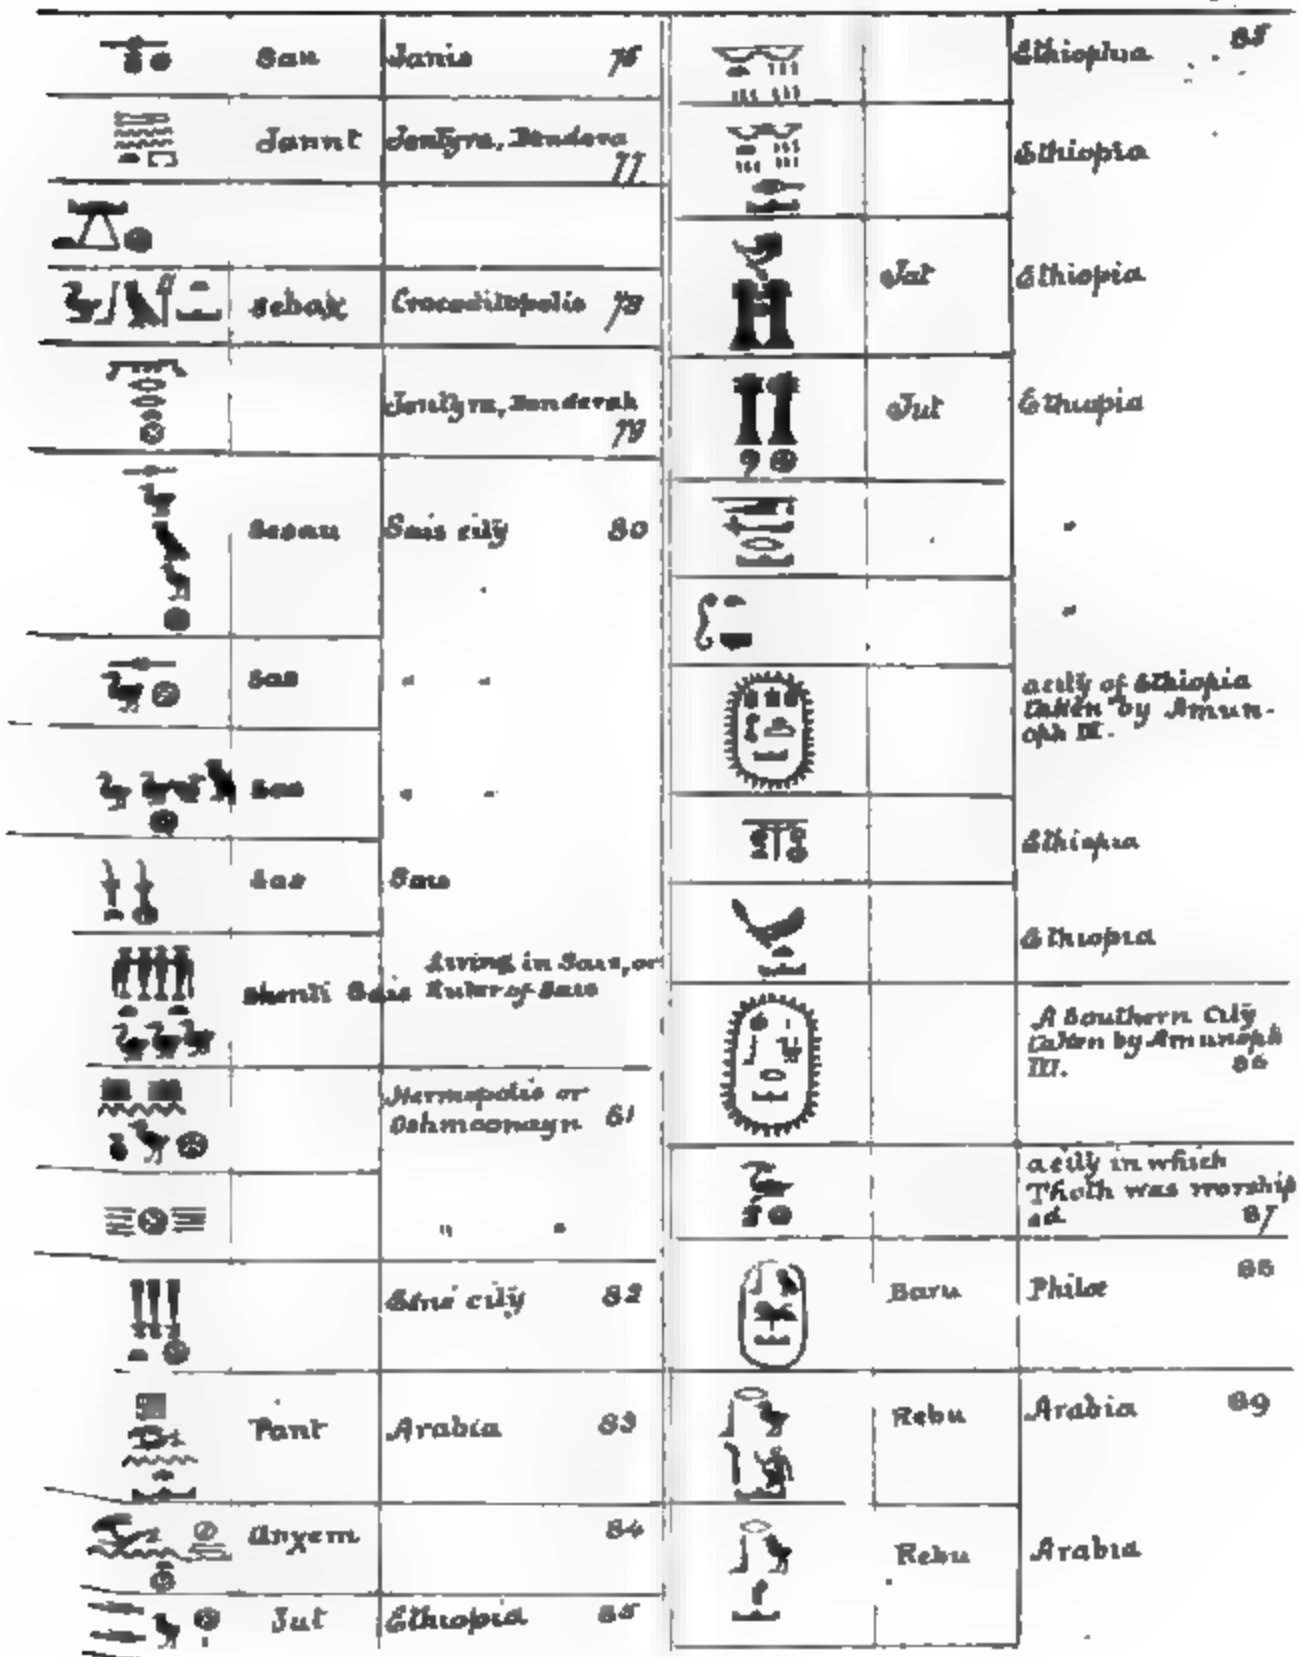 San Tanis 76
Tannt Tentyra, Dendera
77
Sebak Crocodilopolis 78
Tentyra, Denderah
79
Sesau Sais city 80
"
Sas " "
Sas " "
Sas Sais
Shenti Sais Living in Sais, or
Ruler of Sais
Hermopolis or
Oshmoonayn 81
" "
Esne city 82
Pant Arabia 83
84
Tut Ethiopia 85
Ethiopia 85
Ethiopia
Tut Ethiopia
Tut Ethiopia
"
"
a city of Ethiopia
taken by Amun-
oph III.
Ethiopia
Ethiopia
A Southern City
taken by Amunoph
III. 86
a city in which
Thoth was worship
ed. 87
Baru Philoe 88
Rebu Arabia 89
Rebu Arabia